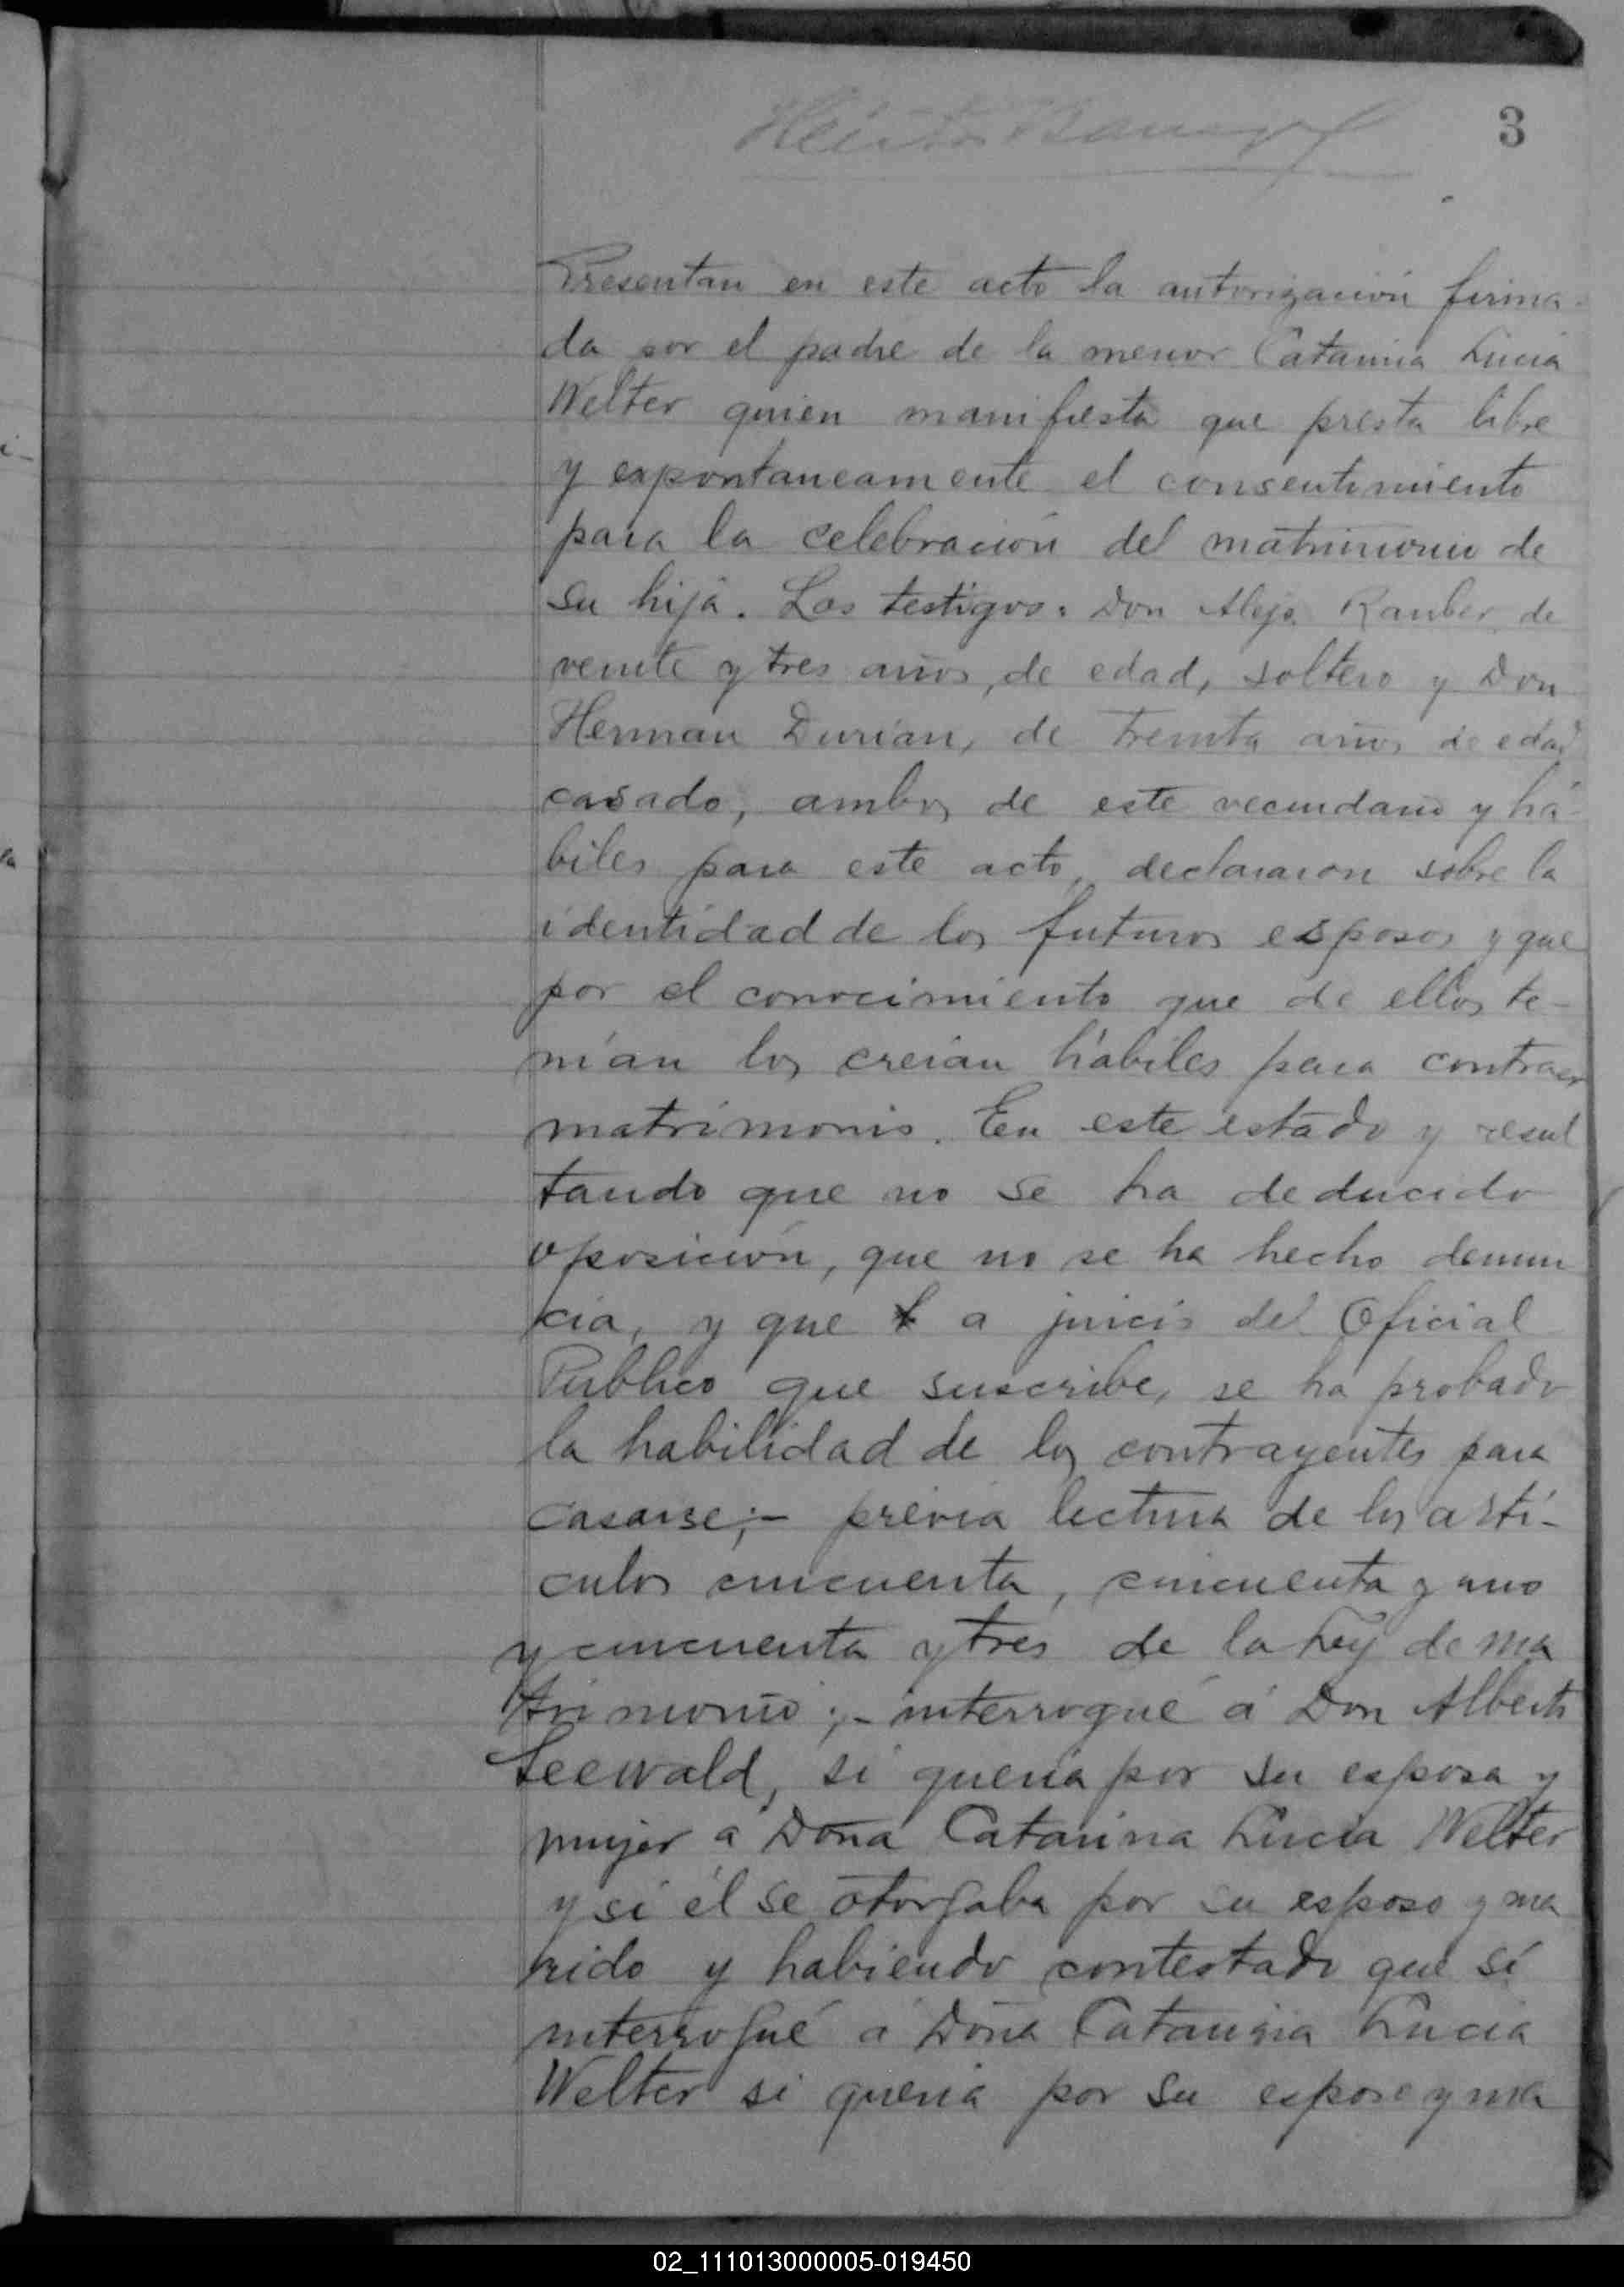 3
Presentan en este acto la autorización firma-
da por el padre de la menor Catarina Lucia
Welter quien manifiesta que presta libre
y expontaneamente el consentimiento
para la celebración del matrimonio de
su hija. Los testigos: Don Alejo Rauber de
veinte y tres años, de edad, soltero y Don
Herman Durian, de treinta años de edad
casado, ambos de este vecindario y há-
biles para este acto, declararon sobre la
identidad de los futuros esposos y que
por el conocimiento que de ellos te-
nían los creian hábiles para contraer
matrimonio. En este estado y resul
tando que no se ha deducido
oposición, que no se ha hecho denun
cia, y que a juicio del Oficial
Publico que suscribe, se ha probado
la habilidad de los contrayentes para
casarse;- previa lectura de los artí-
culos cincuenta, cincuenta y uno
y cincuenta y tres de la Ley de ma
trimonio;- interrogué á Don Alberto
Seewald, si quería por su esposa y
mujer a Doña Catarina Lucia Welter
y si él se otorgaba por su esposo y ma
rido y habiendo contestado que sí
interrogué a Doña Catarina Lucia
Welter si queria por su esposo y ma
02_111013000005-019450